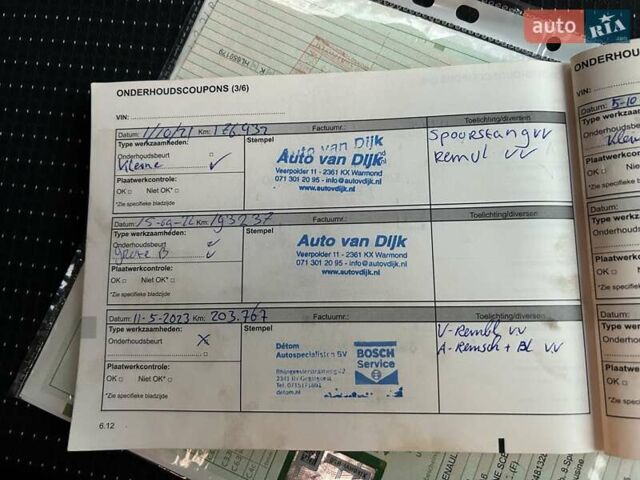 auto RIA
K HL850179
ONDERHOUDSCOUPONS (3/6)
VIN:
Datum: 1/10/21 Km: 176937 Factuurnr.: Toelichting/diversen
Type werkzaamheden: Stempel
Onderhoudsbeurt
Kleine
Plaatwerkcontrole:
OK Niet OK*
*Zie specifieke bladzijde
Auto van Dijk
Veerpolder 11 - 2361 KX Warmond
071 301 20 95 - info@autovdijk.nl
www.autovdijk.nl
Spoorstang vv
Remvl vv
Datum: 15-09-22 Km: 193237 Factuurnr.: Toelichting/diversen
Type werkzaamheden: Stempel
Onderhoudsbeurt
grote B
Plaatwerkcontrole:
OK Niet OK*
*Zie specifieke bladzijde
Auto van Dijk
Veerpolder 11 - 2361 KX Warmond
071 301 20 95 - info@autovdijk.nl
www.autovdijk.nl
Datum: 11-5-2023 Km: 203.767 Factuurnr.: Toelichting/diversen
Type werkzaamheden: Stempel
Onderhoudsbeurt X
Plaatwerkcontrole:
OK Niet OK*
*Zie specifieke bladzijde
Détom
Autospecialisten BV
detom.nl
BOSCH
Service
V-Rembl vv
A-Remsch + Bl vv
6.12
ONDERHOU
VIN:
Datum: 5-10
Type werkzaa
Onderhoudsbe
Kleine
Plaatwerkcon
OK
*Zie specifieke
Datum:
Type werkza
Onderhouds
Plaatwerkco
OK
*Zie specifiek
Datum:
Type werkz
Onderhoud
Plaatwerk
OK
*Zie specif